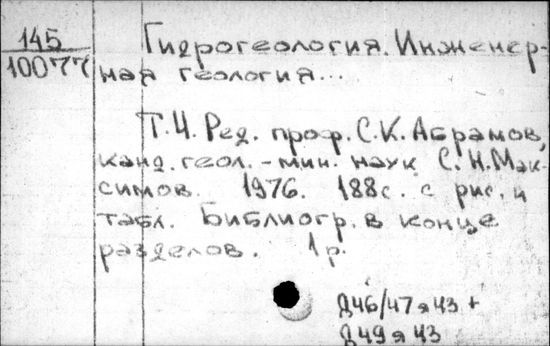 145
10077
Гидрогеология. Инженер-
ная геология...
Т.4. Ред. проф. С.К. Абрамов,
канд. геол.-мин. наук С.Н. Мак-
симов. 1976. 188с. с рис. и
табл. Библиогр. в конце
разделов. 1р.
Д46/47я43 +
Д49я43